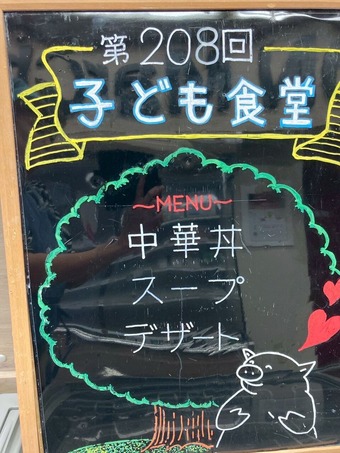 第208回
子ども食堂
~MENU~
中華丼
スープ
デザート